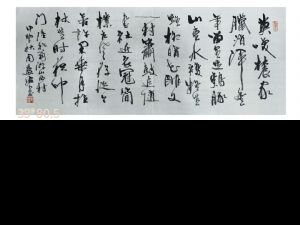 莫笑農家
臘酒渾豐
年留客足雞豚
山重水複疑無
路柳暗花明又
一村簫鼓追隨
春社近衣冠簡
樸古風存從今
若許閑乘月拄
杖無時夜叩
門 陸游詩遊山西村